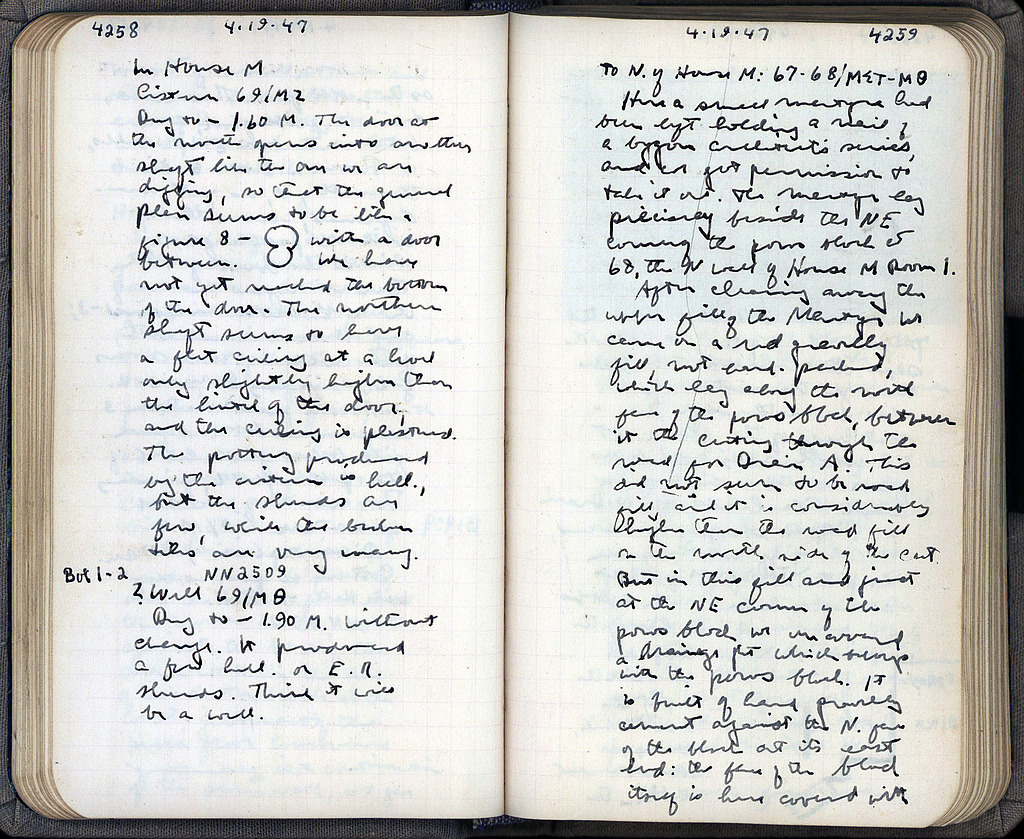 4258 4·19·47
In House M
Cistern 69/MZ
Dug to – 1.60 M. The door at
the north opens into another
shaft like the one we are
digging, so that the general
plan seems to be like a
figure 8 – with a door
between. We have
not yet reached the bottom
of the door. The northern
shaft seems to have
a flat ceiling at a level
only slightly higher than
the lintel of the door,
and the ceiling is plastered.
The pottery produced
by the cistern is hell.,
but the sherds are
few, while the broken
tiles are very many.
Bot 1-2 NN2509
? Well 69/MΘ
Dug to – 1.90 M. without
change. It produced
a few hell. or E.R.
sherds. Think it will
be a well.
4·19·47 4259
To N. of House M: 67-68/MET-MΘ
Here a small martyra had
been left holding a nail of
a bygone architect's series,
and we got permission to
take it out. The martyra lay
precisely beside the NE
corner of the poros block at
68, the N wall of House M Room 1.
After clearing away the
upper fill of the Martyra we
came on a red gravelly
fill, not hard-packed,
which lay along the north
face of the poros block, between
it the cutting through the
road for Drain A. This
did not seem to be road
fill and it is considerably
higher than the road fill
on the north side of the cut.
But in this fill and just
at the NE corner of the
poros block we uncovered
a drainage pit which belongs
with the poros block. It
is built of hard gravelly
cement against the N. face
of the block at its east
end: the face of the block
itself is here covered with